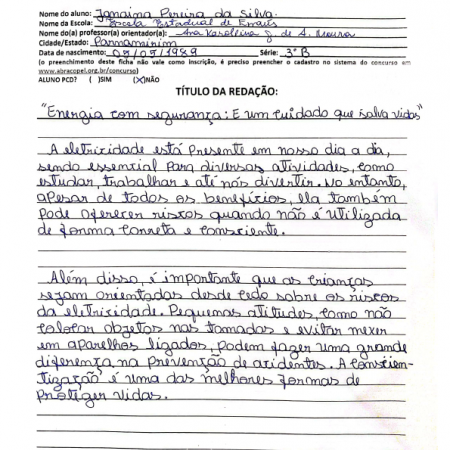 Nome do aluno: Janaina Pereira da Silva.
Nome da Escola: Escola Estadual de Ensino
Nome do(a) professor(a) orientador(a): Ana Karollina J. de A. Moura
Cidade/Estado: Parnamirim
Data de nascimento: 05/05/1989 Série: 3° B
(o preenchimento deste ficha não vale como inscrição, é preciso preencher o cadastro no sistema do concurso em
www.abracopel.org.br/concurso)
ALUNO PCD? ( )SIM (X)NÃO
TÍTULO DA REDAÇÃO:
"Energia com segurança: E um cuidado que salva vidas"
A eletrixidade está presente em nosso dia a dia,
sendo essencial para diversas atividades, como
estudar, trabalhar e até nós divertir. No entanto,
apesar de todos os benefícios, ela também
pode oferecer riscos quando não é utilizada
de forma correta e consciente.
Além disso, é importante que as crianças
sejam orientadas desde cedo sobre os riscos
da eletrixidade. Pequenas atitudes, como não
colocar objetos nas tomadas e evitar mexer
em aparelhos ligados, podem fazer uma grande
diferença na prevenção de acidentes. A conscien-
tização é uma das melhores formas de
protiger vidas.